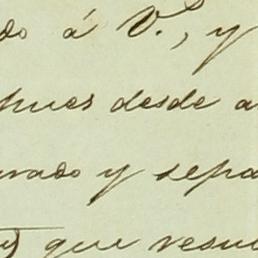 do á V., y
pues desde a
vado y sepa
que resu